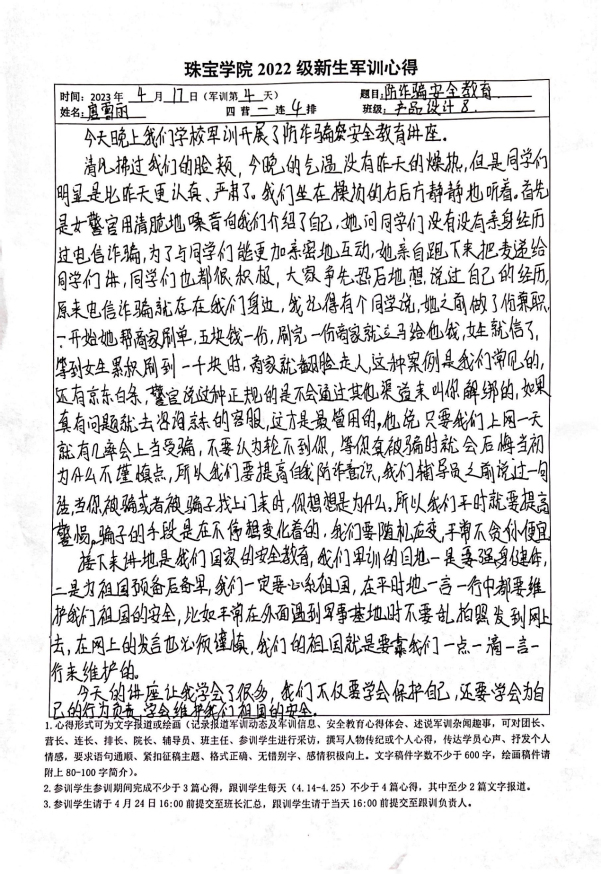 珠宝学院 2022 级新生军训心得
时间：2023 年 4 月 17 日（军训第 4 天） 题目：防诈骗安全教育
姓名：唐雪丽 四 营 一 连 4 排 班级：产品设计8
今天晚上我们学校军训开展了防诈骗安全教育讲座。
清风拂过我们的脸颊，今晚的气温没有昨天的燥热，但是同学们
明显是比昨天更认真、严肃了。我们坐在操场的右后方静静地听着。首先
是女警官用清脆地嗓音向我们介绍了自己，她问同学们没有没有亲身经历
过电信诈骗，为了与同学们能更加亲密地互动，她亲自跑下来把麦递给
同学们讲，同学们也都很积极，大家争先恐后地想说过自己的经历，
原来电信诈骗就存在我们身边，我记得有个同学说，她之前做了份兼职，
一开始她帮商家刷单，五块钱一份，刷完一份商家就立马给他钱，女生就信了，
等到女生累积刷到一千块时，商家就翻脸走人，这种案例是我们常见的，
还有京东白条，警官说这种正规的是不会通过其他渠道来叫你解绑的，如果
真有问题就去咨询京东的客服，这才是最管用的，他说只要我们上网一天
就有几率会上当受骗，不要认为轮不到你，等你真被骗时就会后悔当初
为什么不谨慎点，所以我们要提高自我防诈意识，我们辅导员之前说过一句
话，当你被骗或者被骗子找上门来时，你想想是为什么。所以我们平时就要提高
警惕。骗子的手段是在不停想变化着的，我们要随机应变，平常不贪小便宜
接下来讲地是我们国家的安全教育，我们军训的目地一是要强身健体，
二是为祖国预备后备军，我们一定要心系祖国，在平时地一言一行中都要维
护我们祖国的安全，比如平常在外面遇到军事基地时不要乱拍照发到网上
去，在网上的发言也必须谨慎，我们的祖国就是要靠我们一点一滴一言一
行来维护的。
今天的讲座让我学会了很多，我们不仅要学会保护自己，还要学会为自
己的行为负责，学会维护我们祖国的安全。
1. 心得形式可为文字报道或绘画（记录报道军训动态及军训信息、安全教育心得体会、述说军训杂闻趣事，可对团长、
营长、连长、排长、院长、辅导员、班主任、参训学生进行采访，撰写人物传纪或个人心得，传达学员心声、抒发个人
情感，要求语句通顺、紧扣征稿主题、格式正确、无错别字、感情积极向上。文字稿件字数不少于 600 字，绘画稿件请
附上 80-100 字简介）。
2. 参训学生参训期间完成不少于 3 篇心得，跟训学生每天（4.14-4.25）不少于 4 篇心得，其中至少 2 篇文字报道。
3. 参训学生请于 4 月 24 日 16:00 前提交至班长汇总，跟训学生请于当天 16:00 前提交至跟训负责人。